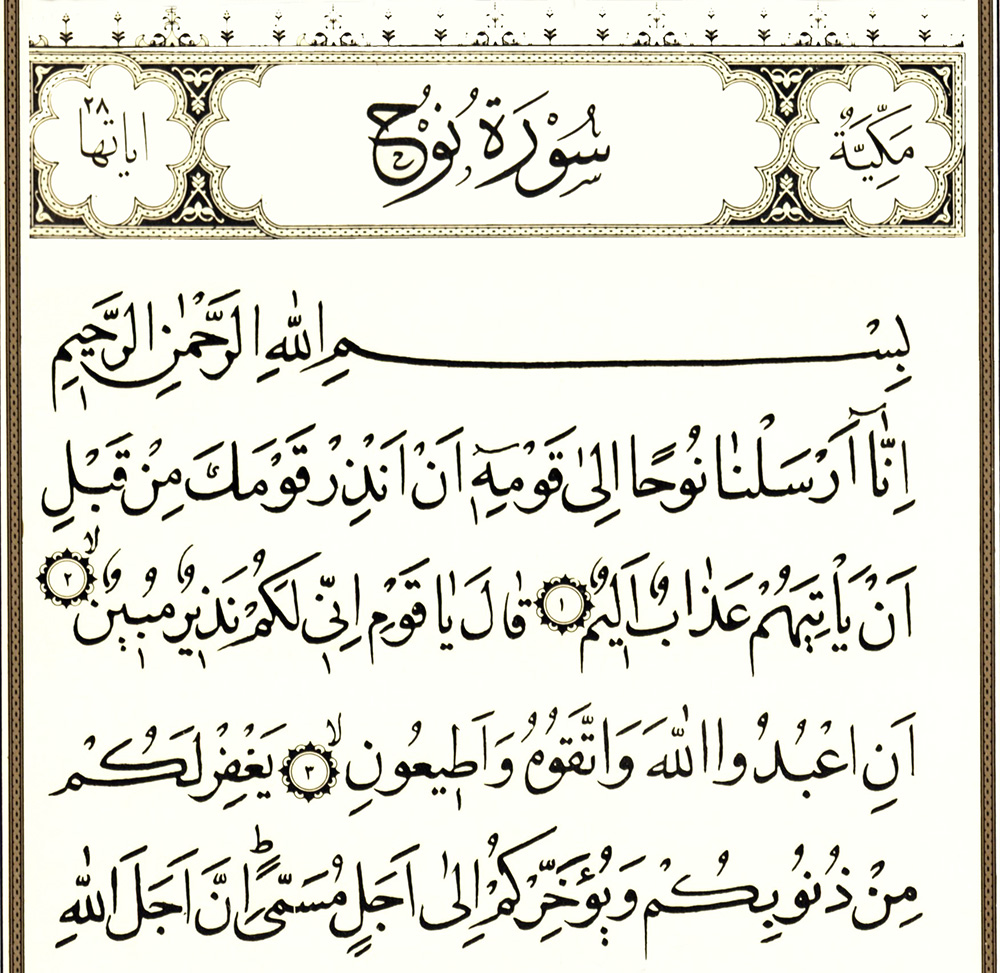 مَكِّيَّةٌ
سُوْرَةُ نُوْحٍ
اٰيَاتُهَا ٢٨
بِسْمِ اللّٰهِ الرَّحْمٰنِ الرَّحِيمِ
اِنَّٓا اَرْسَلْنَا نُوْحًا اِلٰى قَوْمِهٖٓ اَنْ اَنْذِرْ قَوْمَكَ مِنْ قَبْلِ
اَنْ يَأْتِيَهُمْ عَذَابٌ اَلِيمٌ ١ قَالَ يَا قَوْمِ اِنِّي لَكُمْ نَذِيرٌ مُبِينٌ ٢ لا
اَنِ اعْبُدُوا اللّٰهَ وَاتَّقُوهُ وَاَطِيعُونِ لا ٣ يَغْفِرْ لَكُمْ
مِنْ ذُنُوبِكُمْ وَيُؤَخِّرْكُمْ اِلٰى اَجَلٍ مُسَمًّى ط اِنَّ اَجَلَ اللّٰهِ